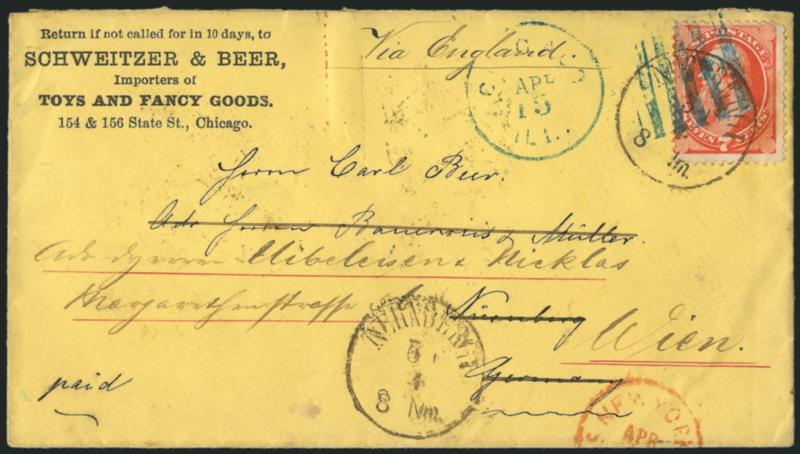 Return if not called for in 10 days, to
SCHWEITZER & BEER,
Importers of
TOYS AND FANCY GOODS.
154 & 156 State St., Chicago.
Via England.
CHICAGO
APL
15
ILL.
POSTAGE
SEVEN 7 CENTS
8 Nm.
Herrn Carl Beer.
Adr Herren & Müller.
Adr Herren Uibeleisen & Nicklas
Margarethenstrasse
Nürnberg
Wien.
Germany
paid
NÜRNBERG
4
8 Nm.
NEW YORK
APR